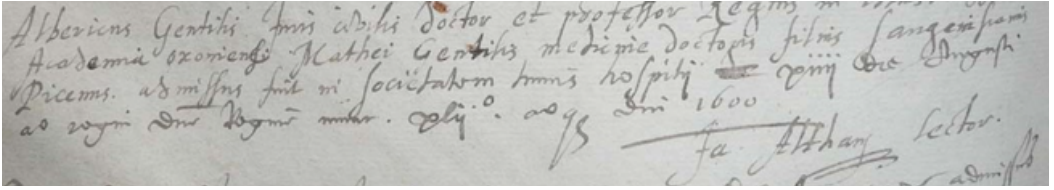 Albericus Gentilis Juris civilis doctor et professor Regius in
Academia oxoniensi Mathei Gentilis medicine doctoris filius Sangenisianus
Picenus. admissus fuit in societatem huius hospitij xiiij die Augusti
ao regni dne Regine xlij°. ao dni 1600
Ja. Altham Lector.
admissus